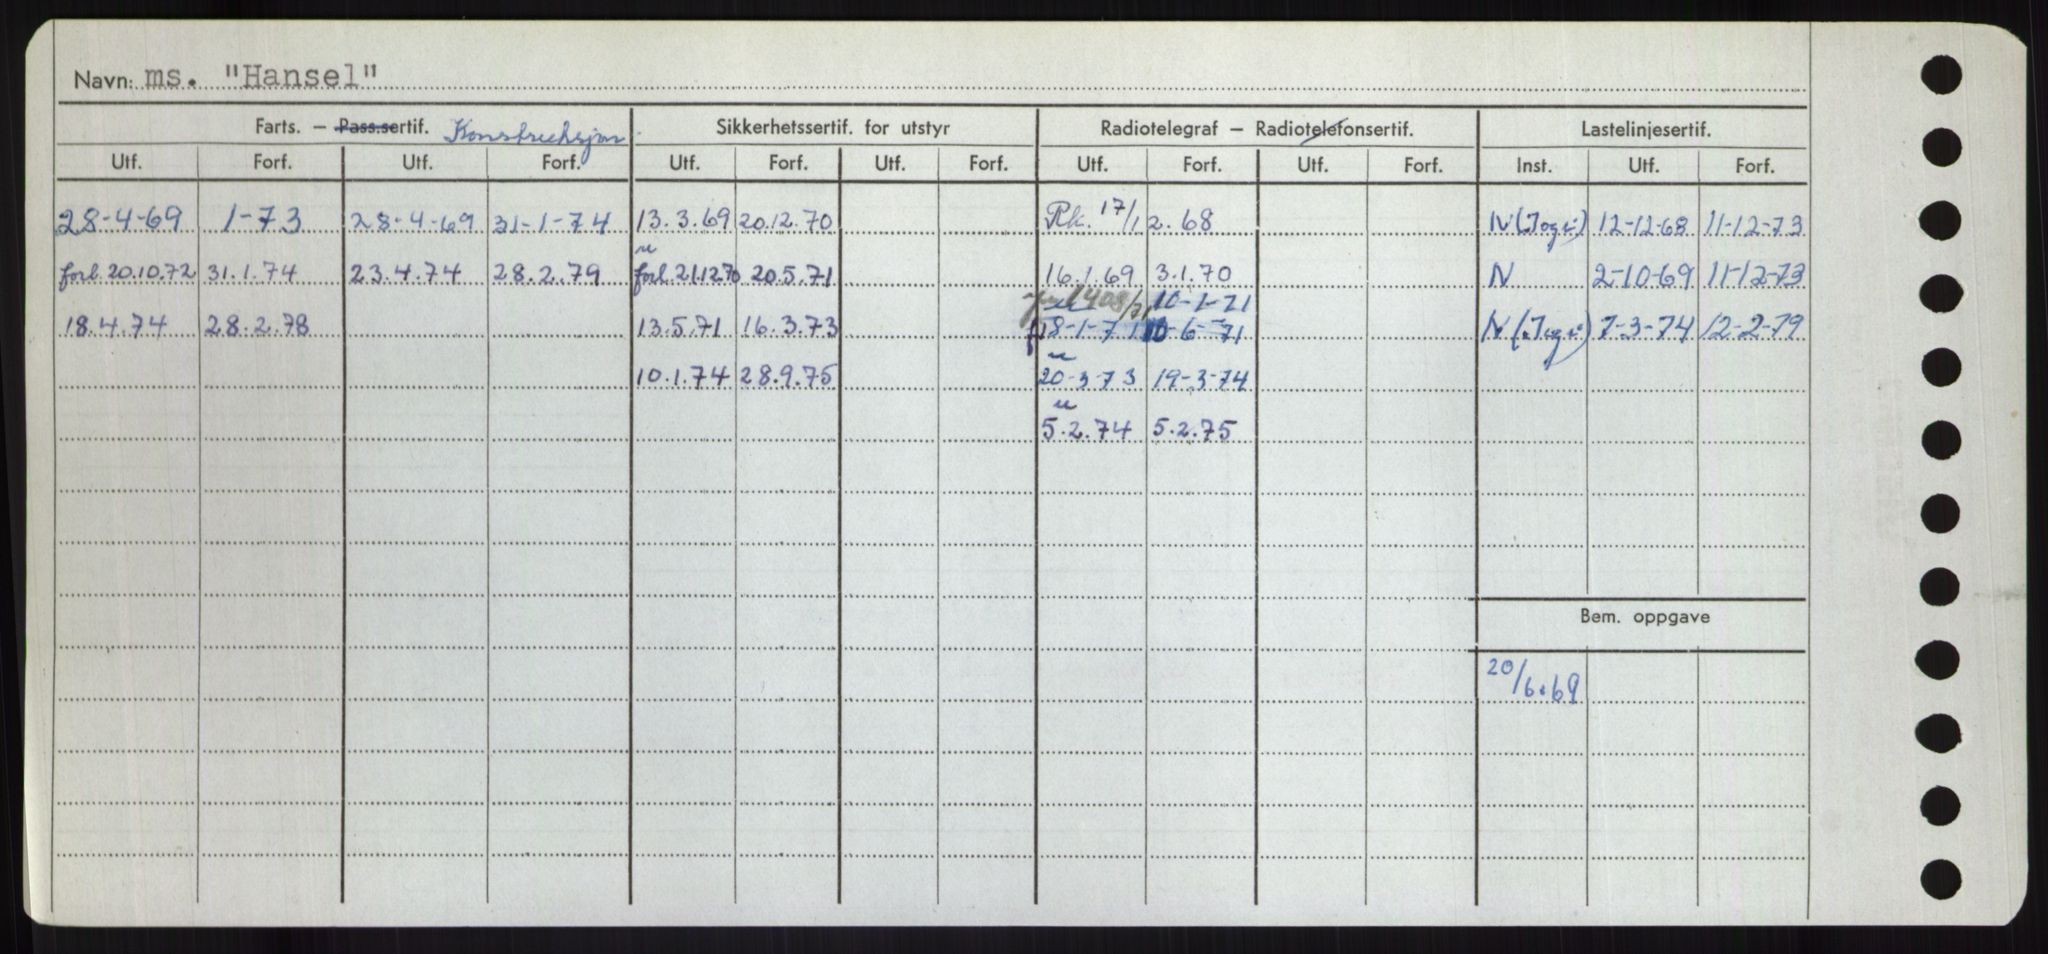 Navn: ms. "Hansel"
Farts. — Pass.sertif. Konstruksjon Sikkerhetssertif. for utstyr Radiotelegraf — Radiotelefonsertif. Lastelinjesertif.
Utf. Forf. Utf. Forf. Utf. Forf. Utf. Forf. Utf. Forf. Utf. Forf. Inst. Utf. Forf.
28-4-69 1-73 28-4-69 31-1-74 13.3.69 20.12.70 Rk. 17/12.68 N 12-12-68 11-12-73
forl. 20.10.72 31.1.74 23.4.74 28.2.79 forl. 21.12.70 20.5.71 16.1.69 3.1.70 N 2-10-69 11-12-73
10-1-71
18.4.74 28.2.78 13.5.71 16.3.73 18-1-71 10-6-71 N 7-3-74 12-2-79
10.1.74 28.9.75 20-3-73 19-3-74
5.2.74 5.2.75
Bem. oppgave
20/6.69